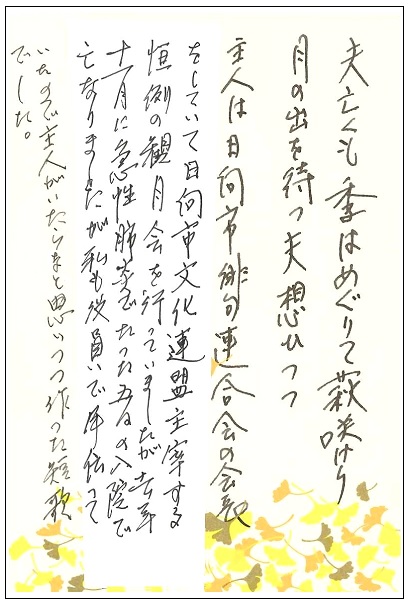 夫亡くも季はめぐりて萩咲けり
月の出を待つ夫想ひつつ
主人は日向市俳句連合会の会長
をしていて日向市文化連盟主宰する
恒例の観月会を行っていましたが去年
十一月に急性肺炎でたった五日の入院で
亡なりましたが私も役員いで手伝って
いたので主人がいたらなと思いつつ作った短歌
でした。